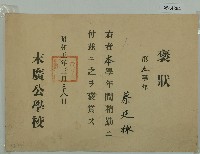 褒狀
第五學年
蔡廷
右者本學年間精勤ニ
付茲ニ之ヲ褒賞ス
昭和五年三月二十八日
末廣公學校